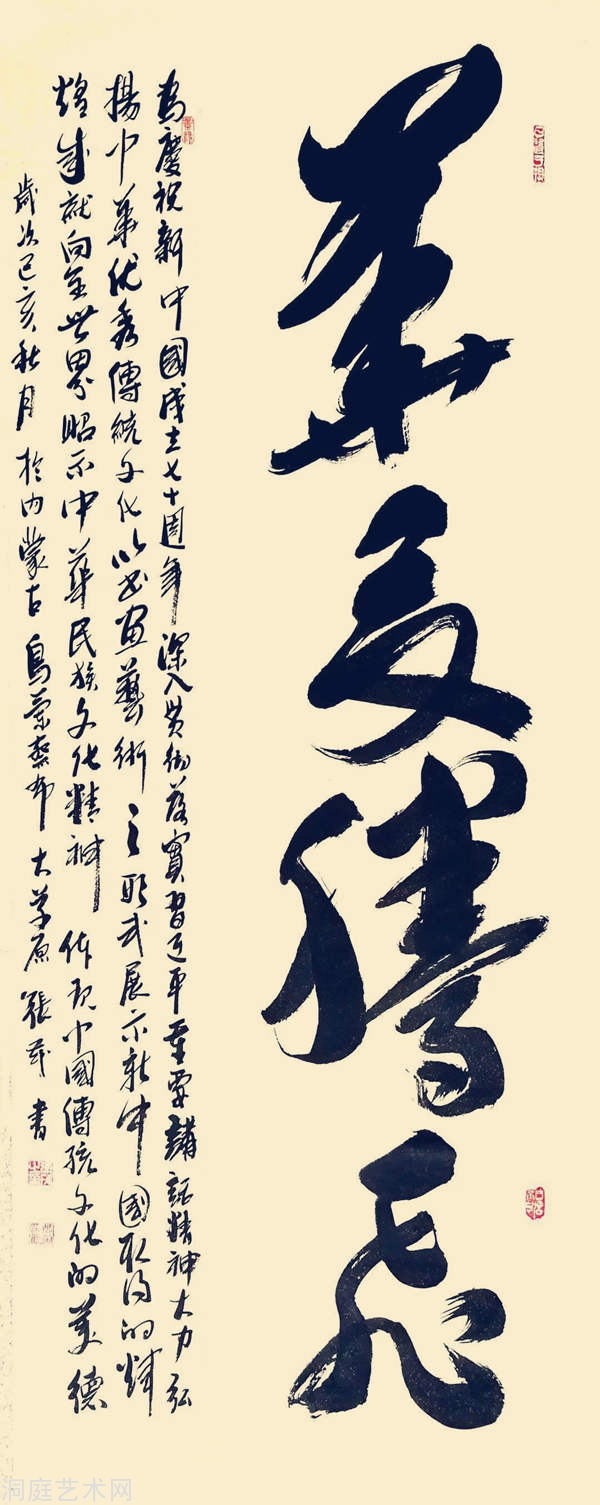 華夏騰飛
為慶祝新中國成立七十週年深入贯彻落實習近平重要講話精神大力弘
揚中華优秀傳統文化以书画藝術之形式展示新中國取得的輝
煌成就向全世界昭示中華民族文化精神体现中國傳統文化的美德
歲次己亥秋月於内蒙古烏蘭察布大草原張書
洞庭艺术网